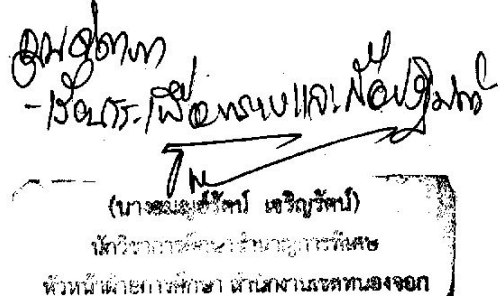 คุณสุดาภา
- เรียน รร. เพื่อทราบและถือปฏิบัติ
เจริญรัตน์)
นักวิชาการศึกษาชำนาญการพิเศษ
หัวหน้าฝ่ายการศึกษา สำนักงานเขตหนองจอก